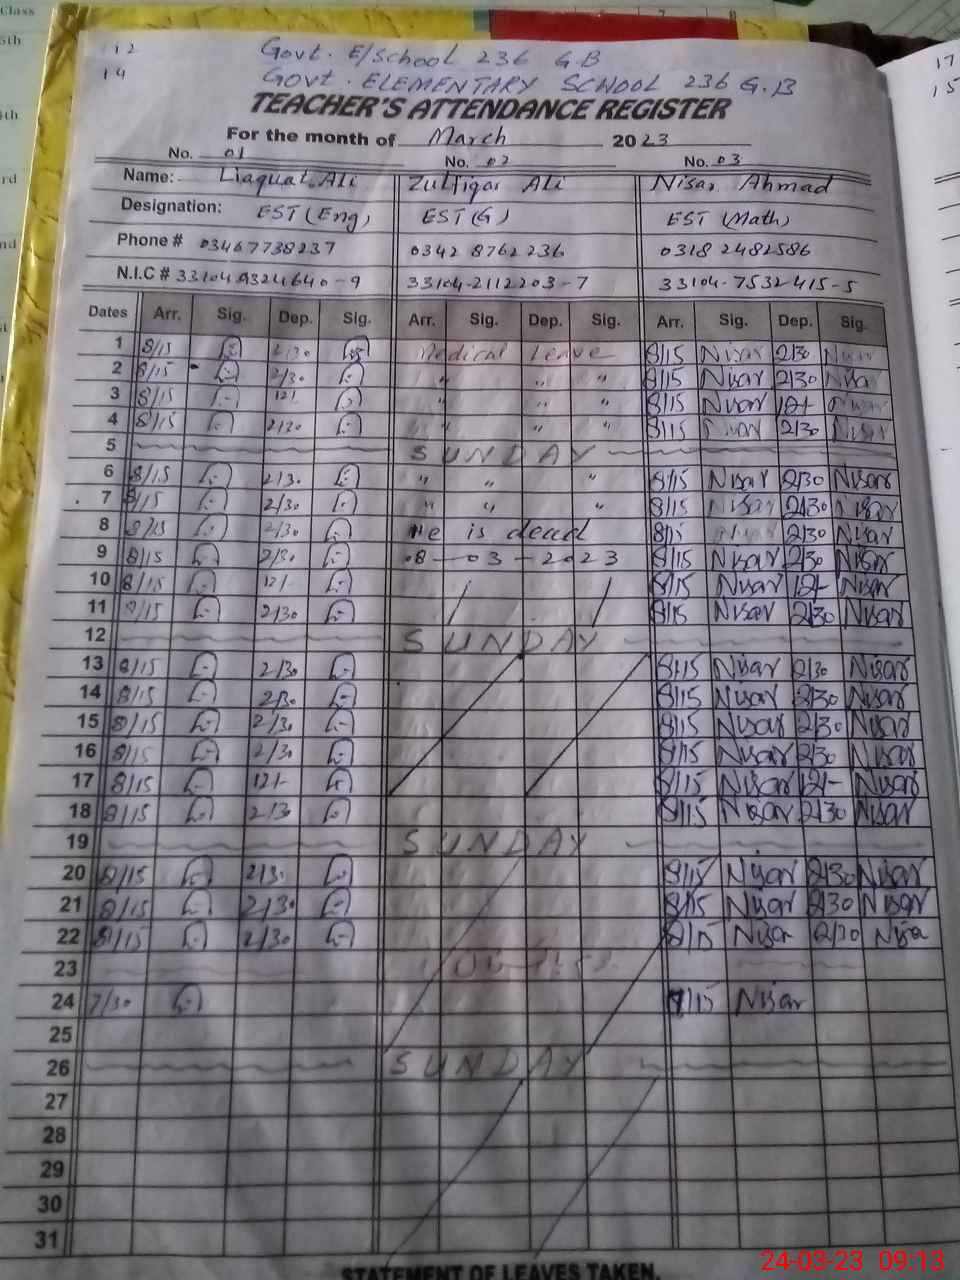 Class
5th
rd
nd
12
14
17
15
Govt. E/School 236 G.B
GOVT. ELEMENTARY SCHOOL 236 G.B
TEACHER'S ATTENDANCE REGISTER
For the month of March 2023
No. 01 No. 02 No. 03
Name: Liaquat Ali Zulfiqar Ali Nisar Ahmad
Designation: EST (Eng) EST (G) EST (Math)
Phone # 03467738237 0342 8762236 0318 2482586
N.I.C # 33104-2112203-7 33104-7532415-5
Dates Arr. Sig. Dep. Sig. Arr. Sig. Dep. Sig. Arr. Sig. Dep. Sig.
1 8/15 2/30 Medical Leave 8/15 Nisar 2/30 Nisar
2 8/15 2/30 " " " 8/15 Nisar 2/30 Nisar
3 8/15 12/- " " " 8/15 Nisar 12/- Nisar
4 8/15 2/30 " " " 8/15 Nisar 2/30 Nisar
5 SUNDAY
6 8/15 2/30 " " " 8/15 Nisar 2/30 Nisar
7 8/15 2/30 " " " 8/15 Nisar 2/30 Nisar
8 8/15 2/30 He is dead 8/15 Nisar 2/30 Nisar
9 8/15 2/30 08-03-2023 8/15 Nisar 2/30 Nisar
10 8/15 12/- 8/15 Nisar 12/- Nisar
11 8/15 2/30 8/15 Nisar 2/30 Nisar
12 SUNDAY
13 8/15 2/30 8/15 Nisar 2/30 Nisar
14 8/15 2/30 8/15 Nisar 2/30 Nisar
15 8/15 2/30 8/15 Nisar 2/30 Nisar
16 8/15 2/30 8/15 Nisar 2/30 Nisar
17 8/15 12/- 8/15 Nisar 12/- Nisar
18 8/15 2/30 8/15 Nisar 2/30 Nisar
19 SUNDAY
20 8/15 2/30 8/15 Nisar 2/30 Nisar
21 8/15 2/30 8/15 Nisar 2/30 Nisar
22 8/15 2/30 8/15 Nisar 2/30 Nisar
23
24 7/30 7/15 Nisar
25
26 SUNDAY
27
28
29
30
31
STATEMENT OF LEAVES TAKEN.
24-03-23 09:13